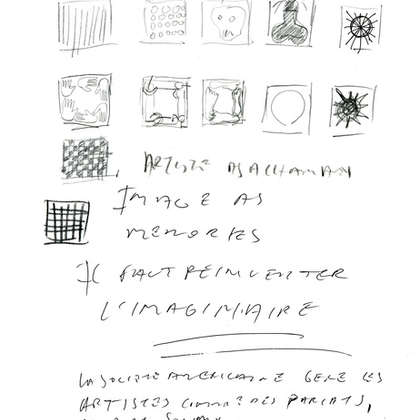 ARTISTE AS A SHAMAN
IMAGE AS
MEMORIES
IL FAUT REINVENTER
L'IMAGINAIRE
LA SOCIETE AMERICAINE GERE LES
ARTISTES COMME DES PARIATS,